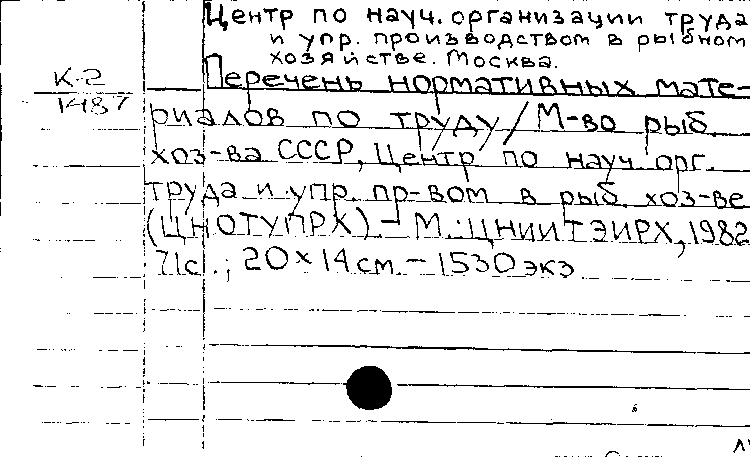 Центр по науч. организации труда
и упр. производством в рыбном
хозяйстве. Москва.
К-2
1487
Перечень нормативных мате-
риалов по труду/М-во рыб.
хоз-ва СССР, Центр по науч. орг.
труда и упр. пр-вом в рыб. хоз-ве
(ЦНОТУПРХ) – М.: ЦНИИТЭИРХ, 1982
71с.; 20×14 см. – 1530 экз